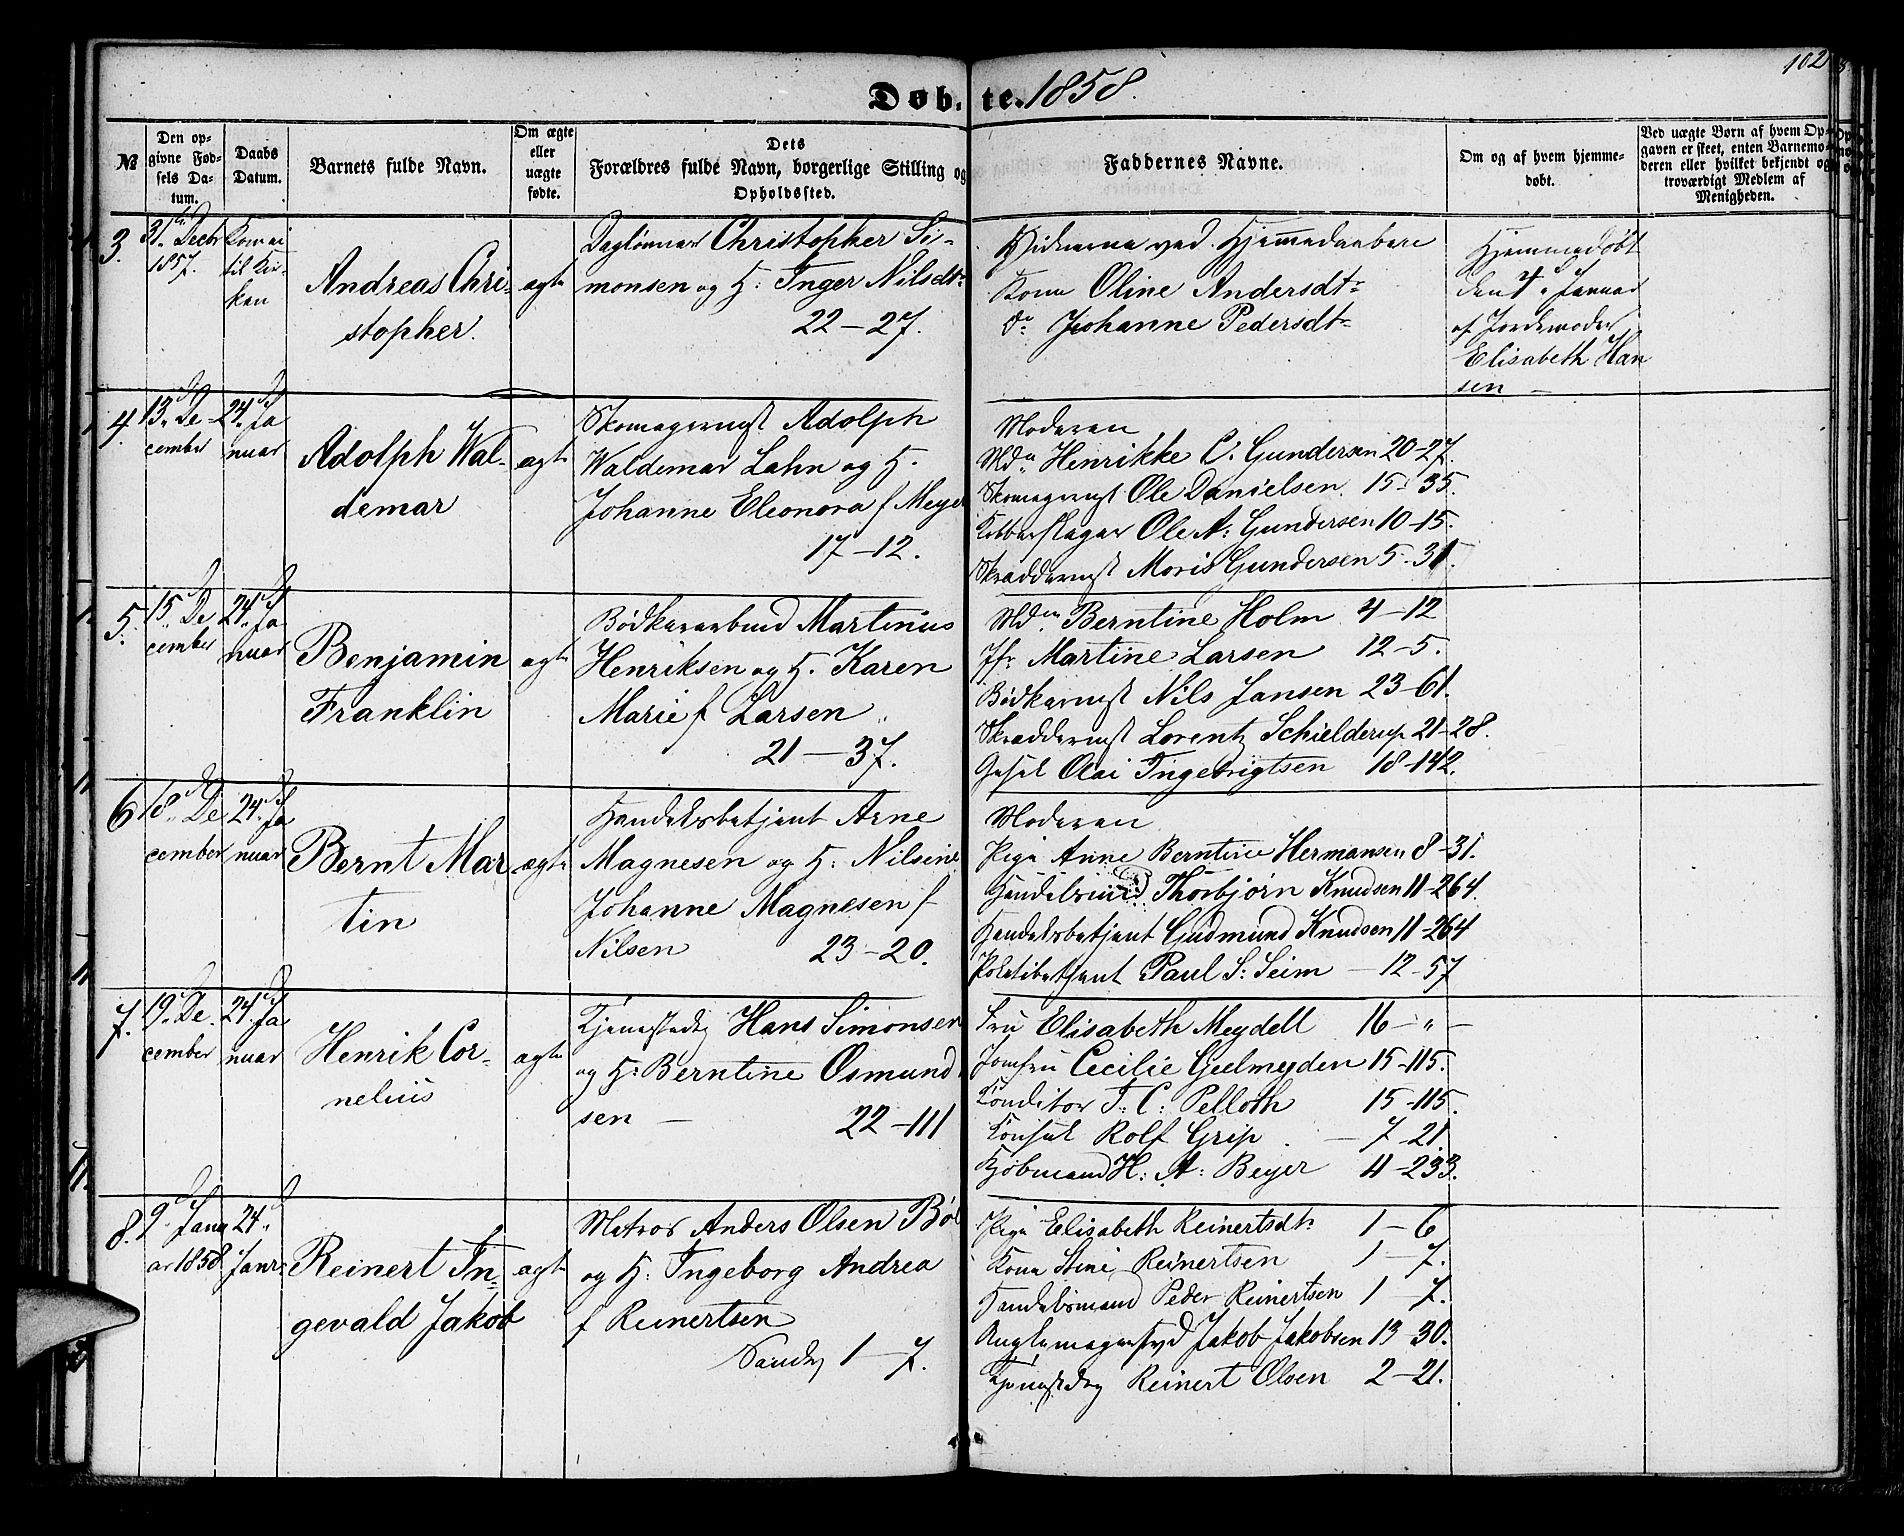 102
Døbte. 1858.
№
Den opgivne Fødsels Datum.
Daabs Datum.
Barnets fulde Navn.
Om ægte eller uægte fødte.
Dets Forældres fulde Navn, borgerlige Stilling og Opholdssted.
Faddernes Navne.
Om og af hvem hjemmedøbt.
Ved uægte Børn af hvem Opgaven er skeet, enten Barnemoderen eller hvilket bekjendt og troværdigt Medlem af Menigheden.
3.
31te Decbr
1857.
Kom ei
til Kirken
Andreas Christopher.
ægte
Daglønner Christopher Simonsen og H: Inger Nilsdtr
22–27.
Vidnerne ved Hjemmedaaben
Kone Oline Andersdtr
do Johanne Pedersdtr
Hjemmedøbt
den 4de Januar
af Jordemoder
Elisabeth Hansen –
4.
13de December
24de Januar
Adolph Waldemar
ægte
Skomagermst Adolph
Waldemar Lahn og H.
Johanne Eleonora f Meyer
17–12.
Moderen
Mdm Henrikke C. Gundersen 20–27.
Skomagermst Ole Danielsen. 15–35.
Kobberslager Ole A: Gundersen 10–15.
Skræddermst Moris Gundersen 5–31.
5.
15de December
24de Januar
Benjamin
Franklin
ægte
Bødkerarbeid Martinus
Henriksen og H. Karen
Marie f Larsen
21–37.
Mdm. Berntine Holm 4–12
Jfr Martine Larsen 12–5.
Bødkermst Nils Jansen 23–61.
Skræddermst Lorentz Schielderup 21–28.
Gesel Olai Ingebrigtsen 18–142.
6
18de December
24de Januar
Bernt Martin
ægte
Handelsbetjent Arne
Magnesen og H: Nilsine
Johanne Magnesen f
Nilsen 23–20.
Moderen
Pige Anne Berntine Hermansen 8–31.
Thorbjørn Knudsen 11–264.
Handelsbetjent Gudmund Knudsen 11–264
Politibetjent Paul S: Seim – 12–57
7.
19de December
24de Januar
Henrik Cornelius
ægte
Tjenestedrg Hans Simonsen
og H: Berntine Osmundsen – 22–111
Fru Elisabeth Meydell 16–"–
Jomfru Cecilie Geelmeyden 15–115.
Konditor T: C: Pelloth 15–115.
Konsul Rolf Grip. – 7–21.
Kjøbmand H: A: Beyer 4–233.
8.
9de Januar 1858
24de Janr.
Reinert Ingevald Jakob
ægte
Matros Anders Olsen Bøe
og H: Ingeborg Andrea
f Reinertsen
Sandv 1–7.
Pige Elisabeth Reinertsdtr 1–6
Kone Stine Reinertsen 1–7.
Handelsmand Peder Reinertsen 1–7.
Jakob Jakobsen 13–30.
Tjenestdrg Reinert Olsen 2–21.